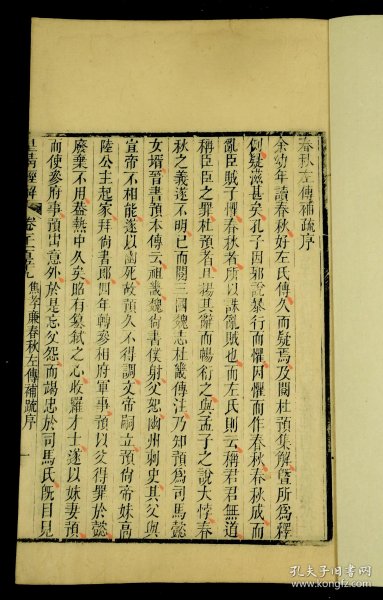 春秋左傳補疏序
余幼年讀春秋好左氏傳久而疑焉及閱杜預集解暨所爲釋
例疑滋甚矣孔子因邪說暴行而懼因懼而作春秋春秋成而
亂臣賊子懼春秋者所以誅亂賊也而左氏則云稱君君無道
稱臣臣之罪杜預者且揚其辭而暢衍之與孟子之說大悖春
秋之義遂不明已而閱三國魏志杜畿傳注乃知預爲司馬懿
女壻晉書預本傳云祖畿魏尚書僕射父恕幽州刺史其父與
宣帝不相能遂以幽死故預久不得調文帝嗣立預尚帝妹高
陸公主起家拜尚書郎四年轉參相府軍事預以父得罪於懿
廢棄不用蓋熱中久矣昭有篡弒之心收羅才士遂以妹妻預
而使參府事預出意外於是忘父怨而竭忠於司馬氏既目見
皇清經解
卷千一百五九
焦孝廉春秋左傳補疏序
一
孔夫子旧书网
kongfz.com